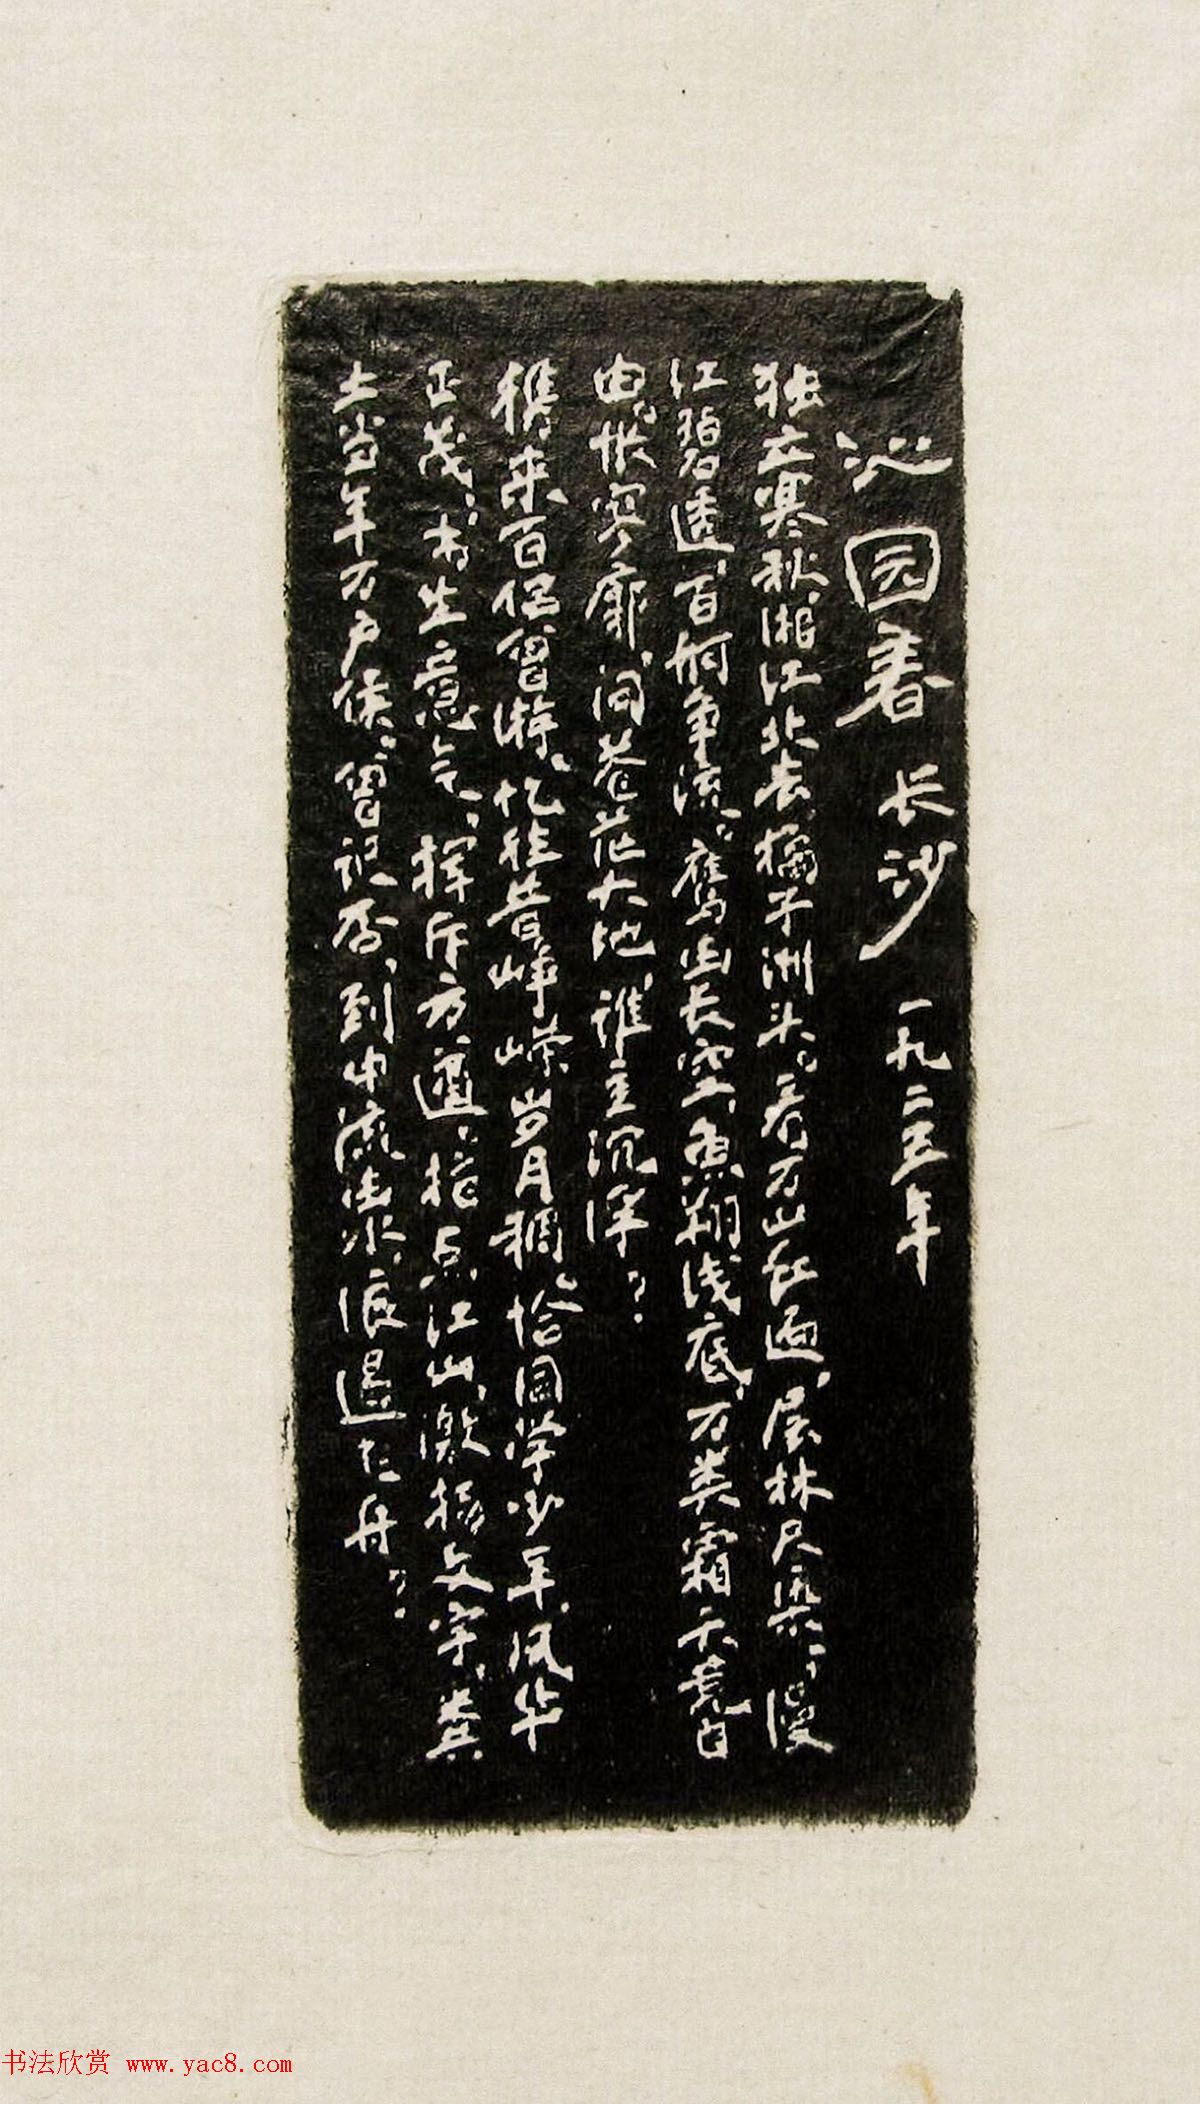 沁园春 长沙 一九二五年
独立寒秋，湘江北去，橘子洲头。看万山红遍，层林尽染；漫
江碧透，百舸争流。鹰击长空，鱼翔浅底，万类霜天竞自
由。怅寥廓，问苍茫大地，谁主沉浮？
携来百侣曾游，忆往昔峥嵘岁月稠。恰同学少年，风华
正茂；书生意气，挥斥方遒。指点江山，激扬文字，粪
土当年万户侯。曾记否，到中流击水，浪遏飞舟？
书法欣赏 www.yac8.com